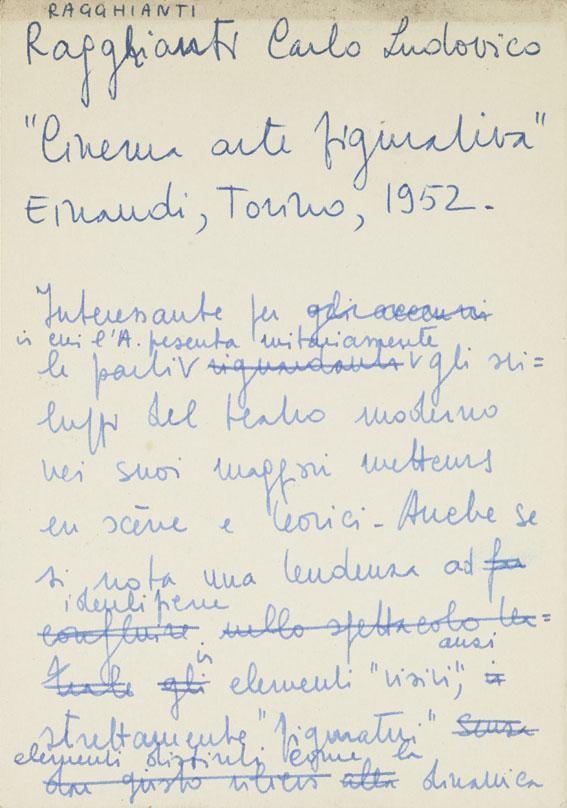 RAGGHIANTI
Ragghianti Carlo Ludovico
"Cinema arte figurativa"
Einaudi, Torino, 1952.
Interessante per gli accenni
in cui l'A. presenta unitariamente
le parti riguardanti gli svi=
luppi del teatro moderno
nei suoi maggiori metteurs
en scène e teorici - Anche se
si nota una tendenza ad
identificare
confluire nello spettacolo tea=
anzi
in
trale gli elementi "visivi",
strettamente "figurativi" senza
elementi distinti come la
dar giusto rilievo alla dinamica